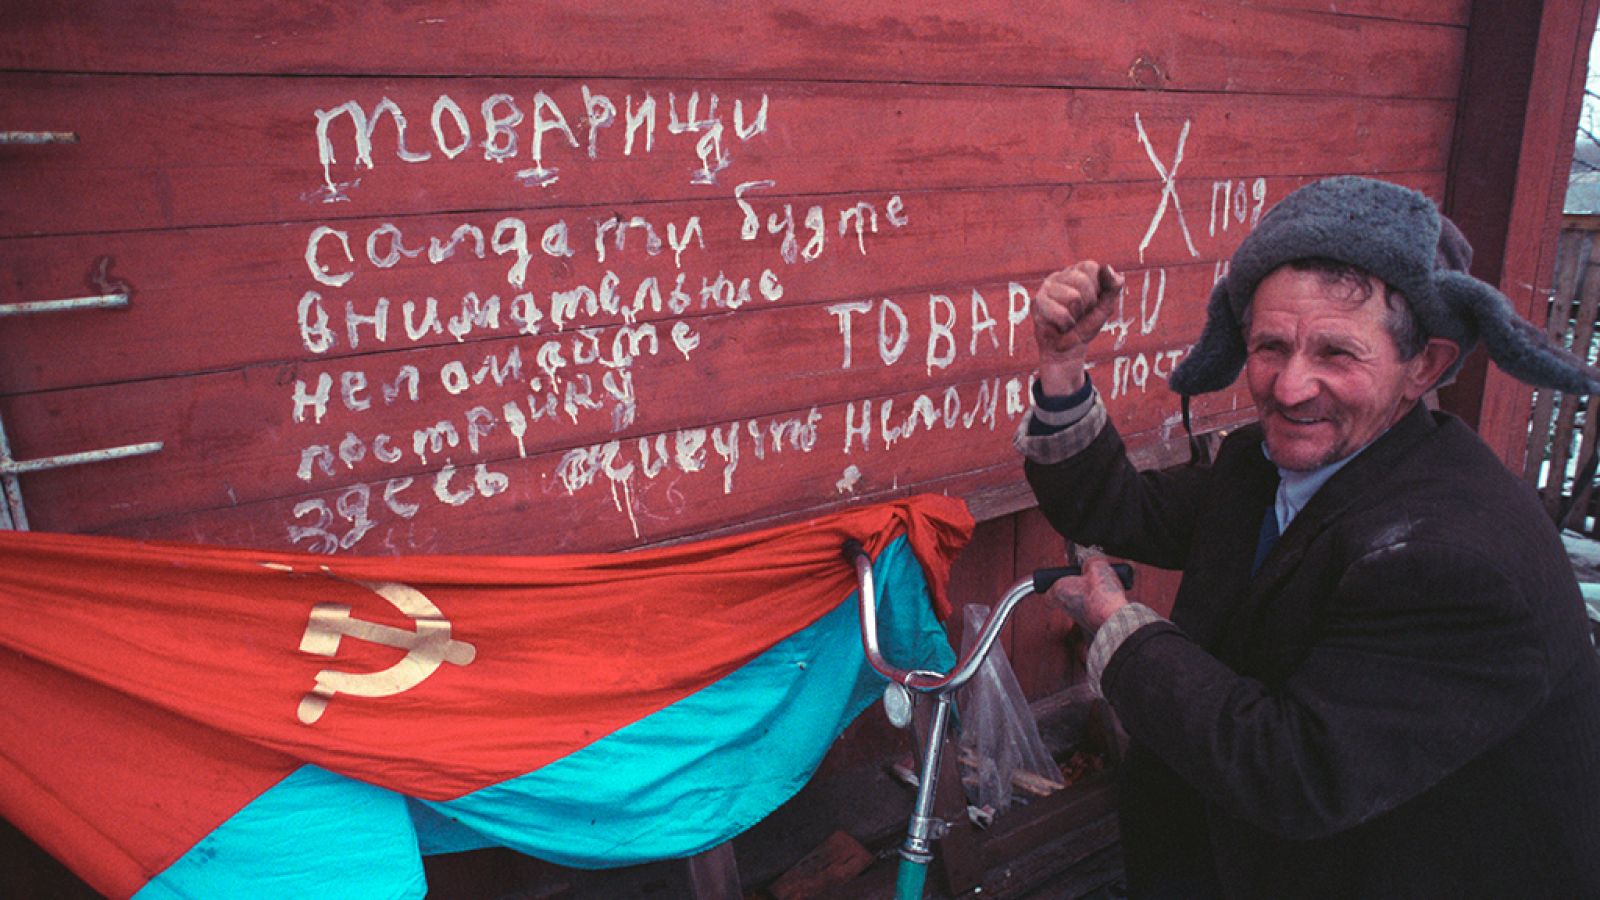 ТОВАРИЩИ
солдаты будте
внимательние
неломайте
постройку
здесь живуть
Х под
неломай пост